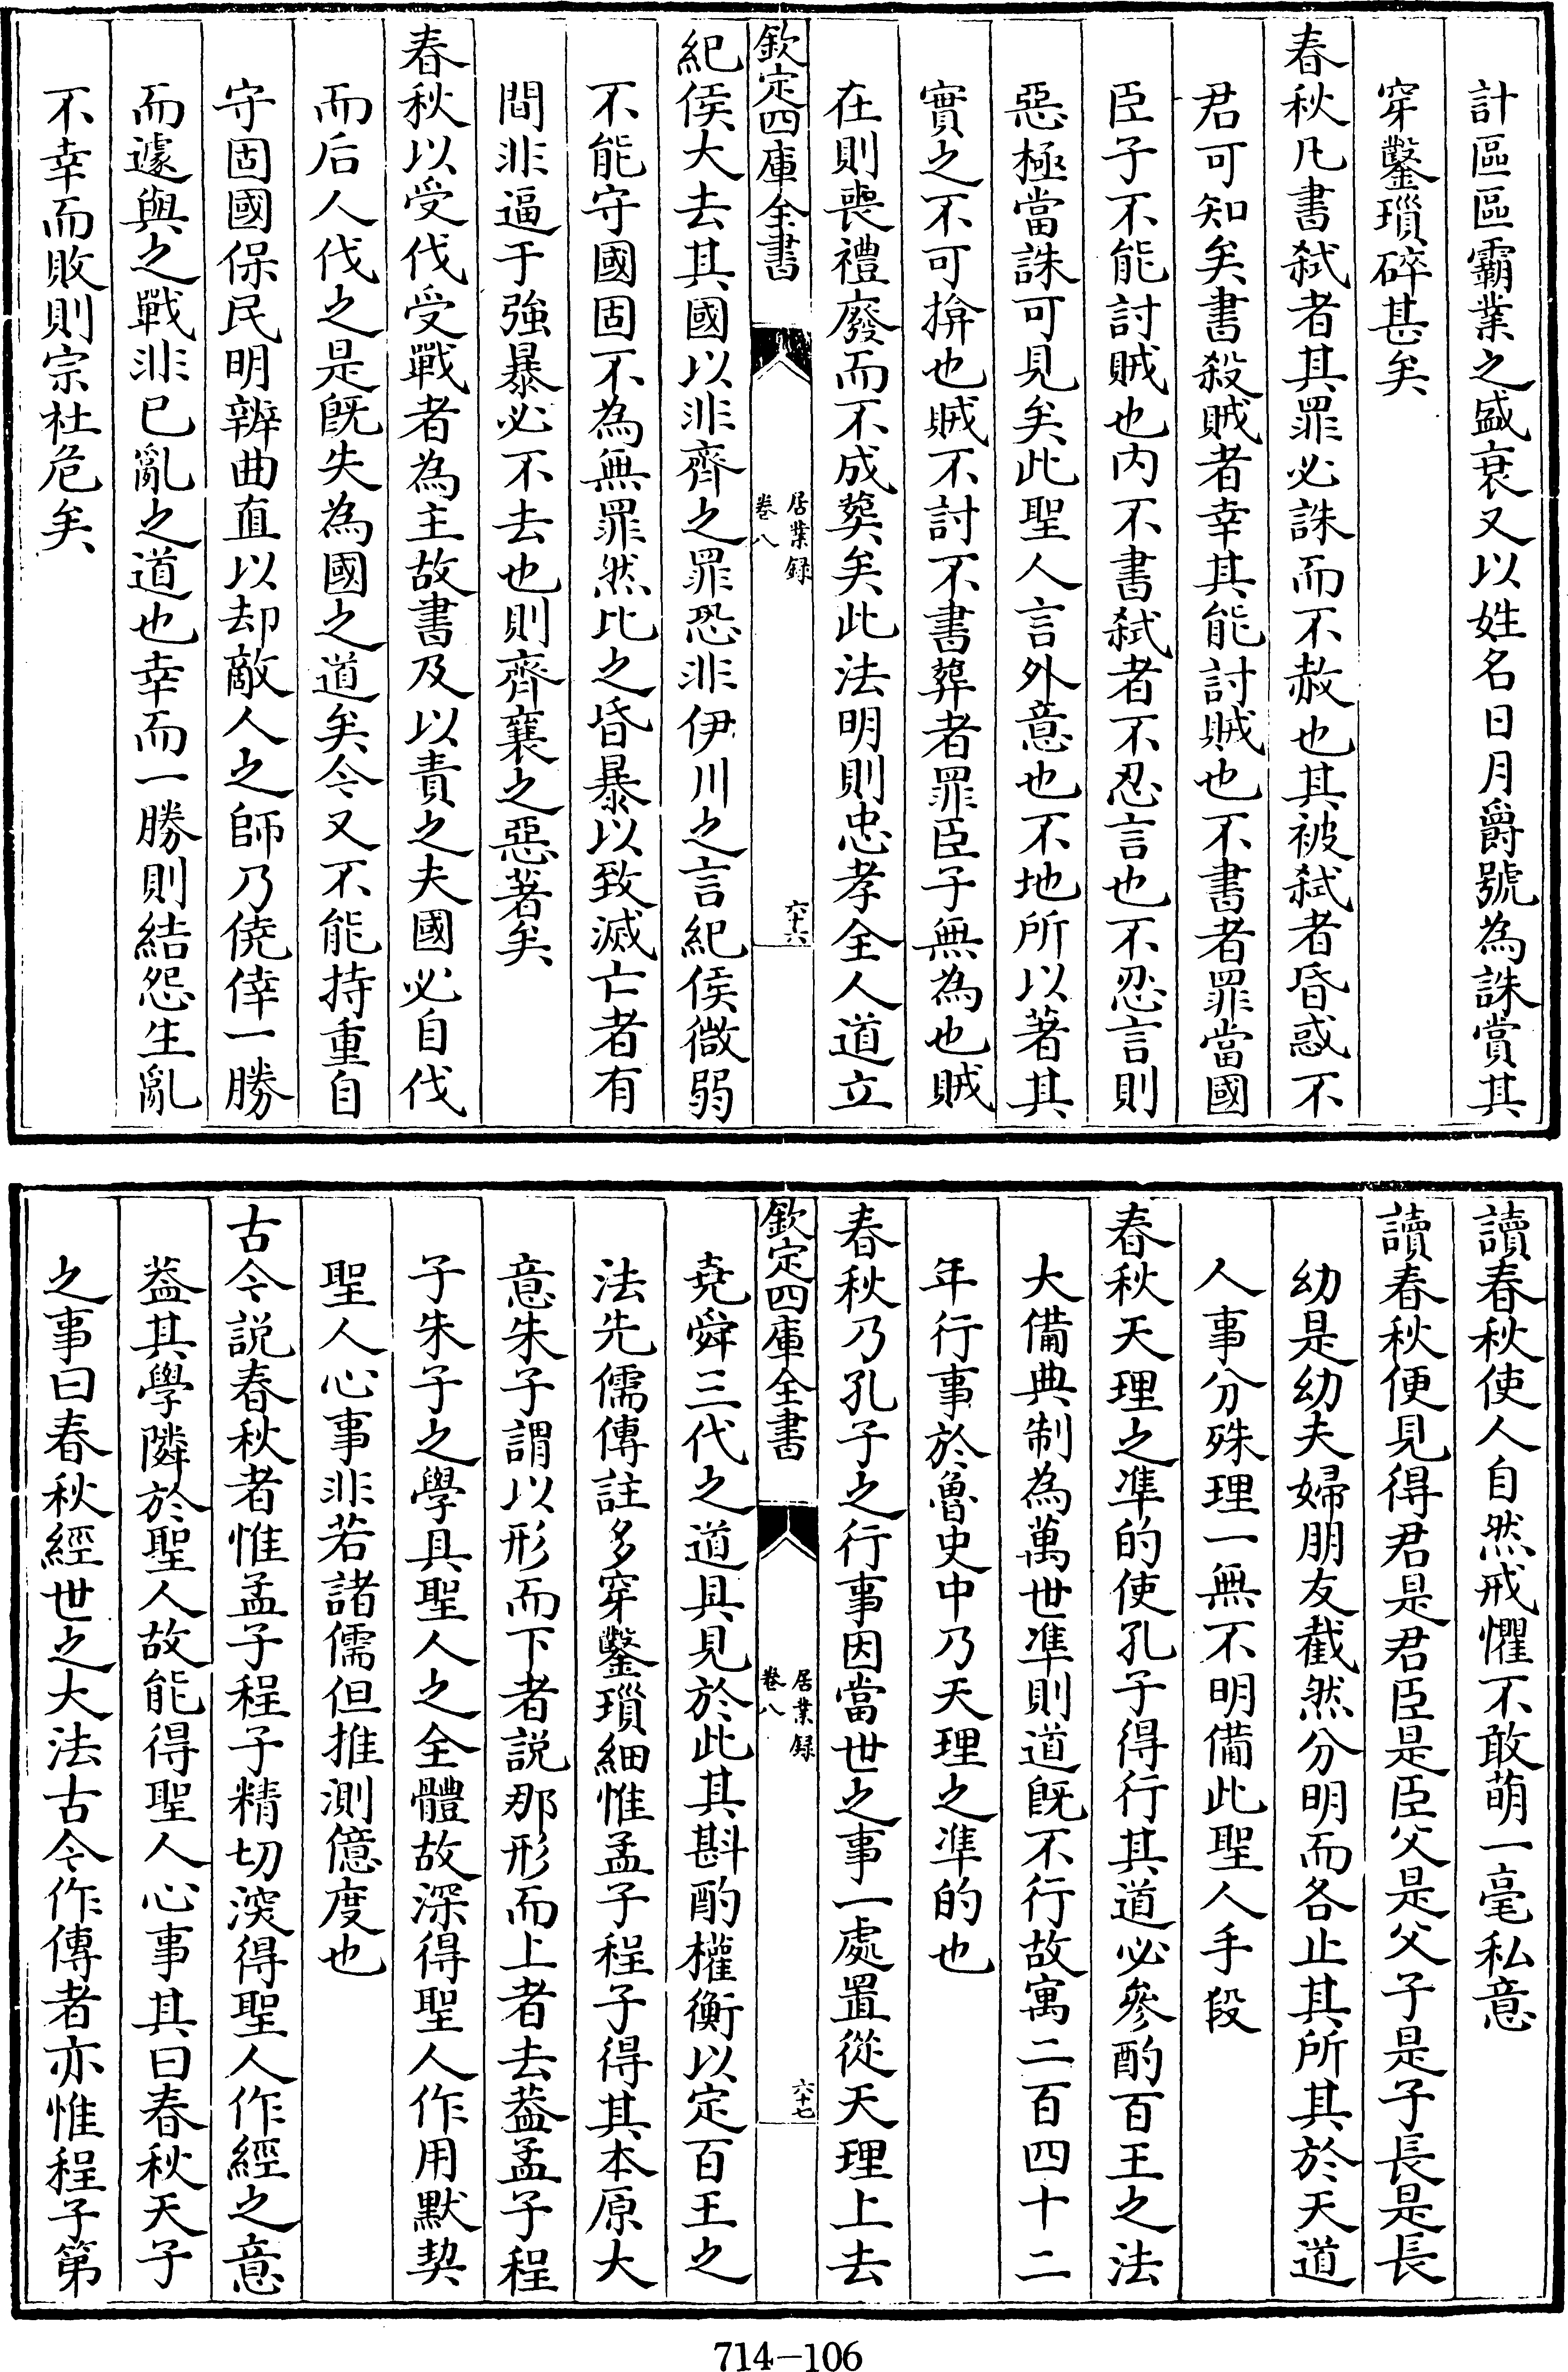 計區區霸業之盛衰又以姓名日月爵號為誅賞其
穿鑿瑣碎甚矣
春秋凡書弑者其罪必誅而不赦也其被弑者昏惑不
君可知矣書殺賊者幸其能討賊也不書者罪當國
臣子不能討賊也内不書弑者不忍言也不忍言則
惡極當誅可見矣此聖人言外意也不地所以著其
實之不可揜也賊不討不書葬者罪臣子無為也賊
在則喪禮廢而不成葬矣此法明則忠孝全人道立
欽定四庫全書
居業録
卷八
六十六
紀侯大去其國以非齊之罪恐非伊川之言紀侯微弱
不能守國固不為無罪然比之昏暴以致滅亡者有
間非逼于強暴必不去也則齊襄之惡著矣
春秋以受伐受戰者為主故書及以責之夫國必自伐
而后人伐之是既失為國之道矣今又不能持重自
守固國保民明辨曲直以却敵人之師乃僥倖一勝
而遽與之戰非已亂之道也幸而一勝則結怨生亂
不幸而敗則宗社危矣
讀春秋使人自然戒懼不敢萌一毫私意
讀春秋便見得君是君臣是臣父是父子是子長是長
幼是幼夫婦朋友截然分明而各止其所其於天道
人事分殊理一無不明備此聖人手段
春秋天理之凖的使孔子得行其道必參酌百王之法
大備典制為萬世凖則道既不行故寓二百四十二
年行事於魯史中乃天理之凖的也
春秋乃孔子之行事因當世之事一處置從天理上去
欽定四庫全書
居業録
卷八
六十七
堯舜三代之道具見於此其斟酌權衡以定百王之
法先儒傳註多穿鑿瑣細惟孟子程子得其本原大
意朱子謂以形而下者説那形而上者去葢孟子程
子朱子之學具聖人之全體故深得聖人作用默契
聖人心事非若諸儒但推測億度也
古今説春秋者惟孟子程子精切深得聖人作經之意
葢其學隣於聖人故能得聖人心事其曰春秋天子
之事曰春秋經世之大法古今作傳者亦惟程子第
714-106